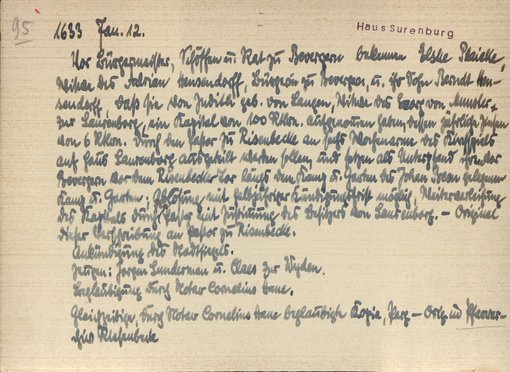 95
1633 Jan. 12.
Haus Surenburg
Vor Bürgermeister, Schöffen u. Rat zu Bevergern bekennen Elske
Witwe des Adrian Hensendorff, Bürgerin zu Bevergern, u. ihr Sohn Berndt Hen-
sendorff, daß sie von Judith geb. von Langen, Witwe des Caspar von Munster
zur Surenburg, ein Kapital von 100 Rtlrn. aufgenommen haben, dessen jährliche Zinsen
von 6 Rtlrn. durch den Pastor zu Riesenbecke an Hausarme des Kirchspiels
auf Haus Surenburg ausgeteilt werden sollen, und setzen als Unterpfand ihren vor
Bevergern vor dem Riesenbecker Tor längs den Kamp u. Garten des Johan gelegenen
Kamp u. Garten; Ablösung mit halbjähriger Kündigungsfrist möglich, Wiederverleihung
des Kapitals durch Pastor mit Zustimmung des Besitzers von Surenburg. – Original
dieser Verschreibung an Pastor zu Riesenbecke.
Ankündigung des Stadtsiegels.
Zeugen: Jorgen Sunderman u. Claes zur Wyden.
Beglaubigung durch Notar Cornelius Hane.
Gleichzeitige, durch Notar Cornelius Hane beglaubigte Kopie, Perg. – Orig. im Pfarrar-
chiv Riesenbeck